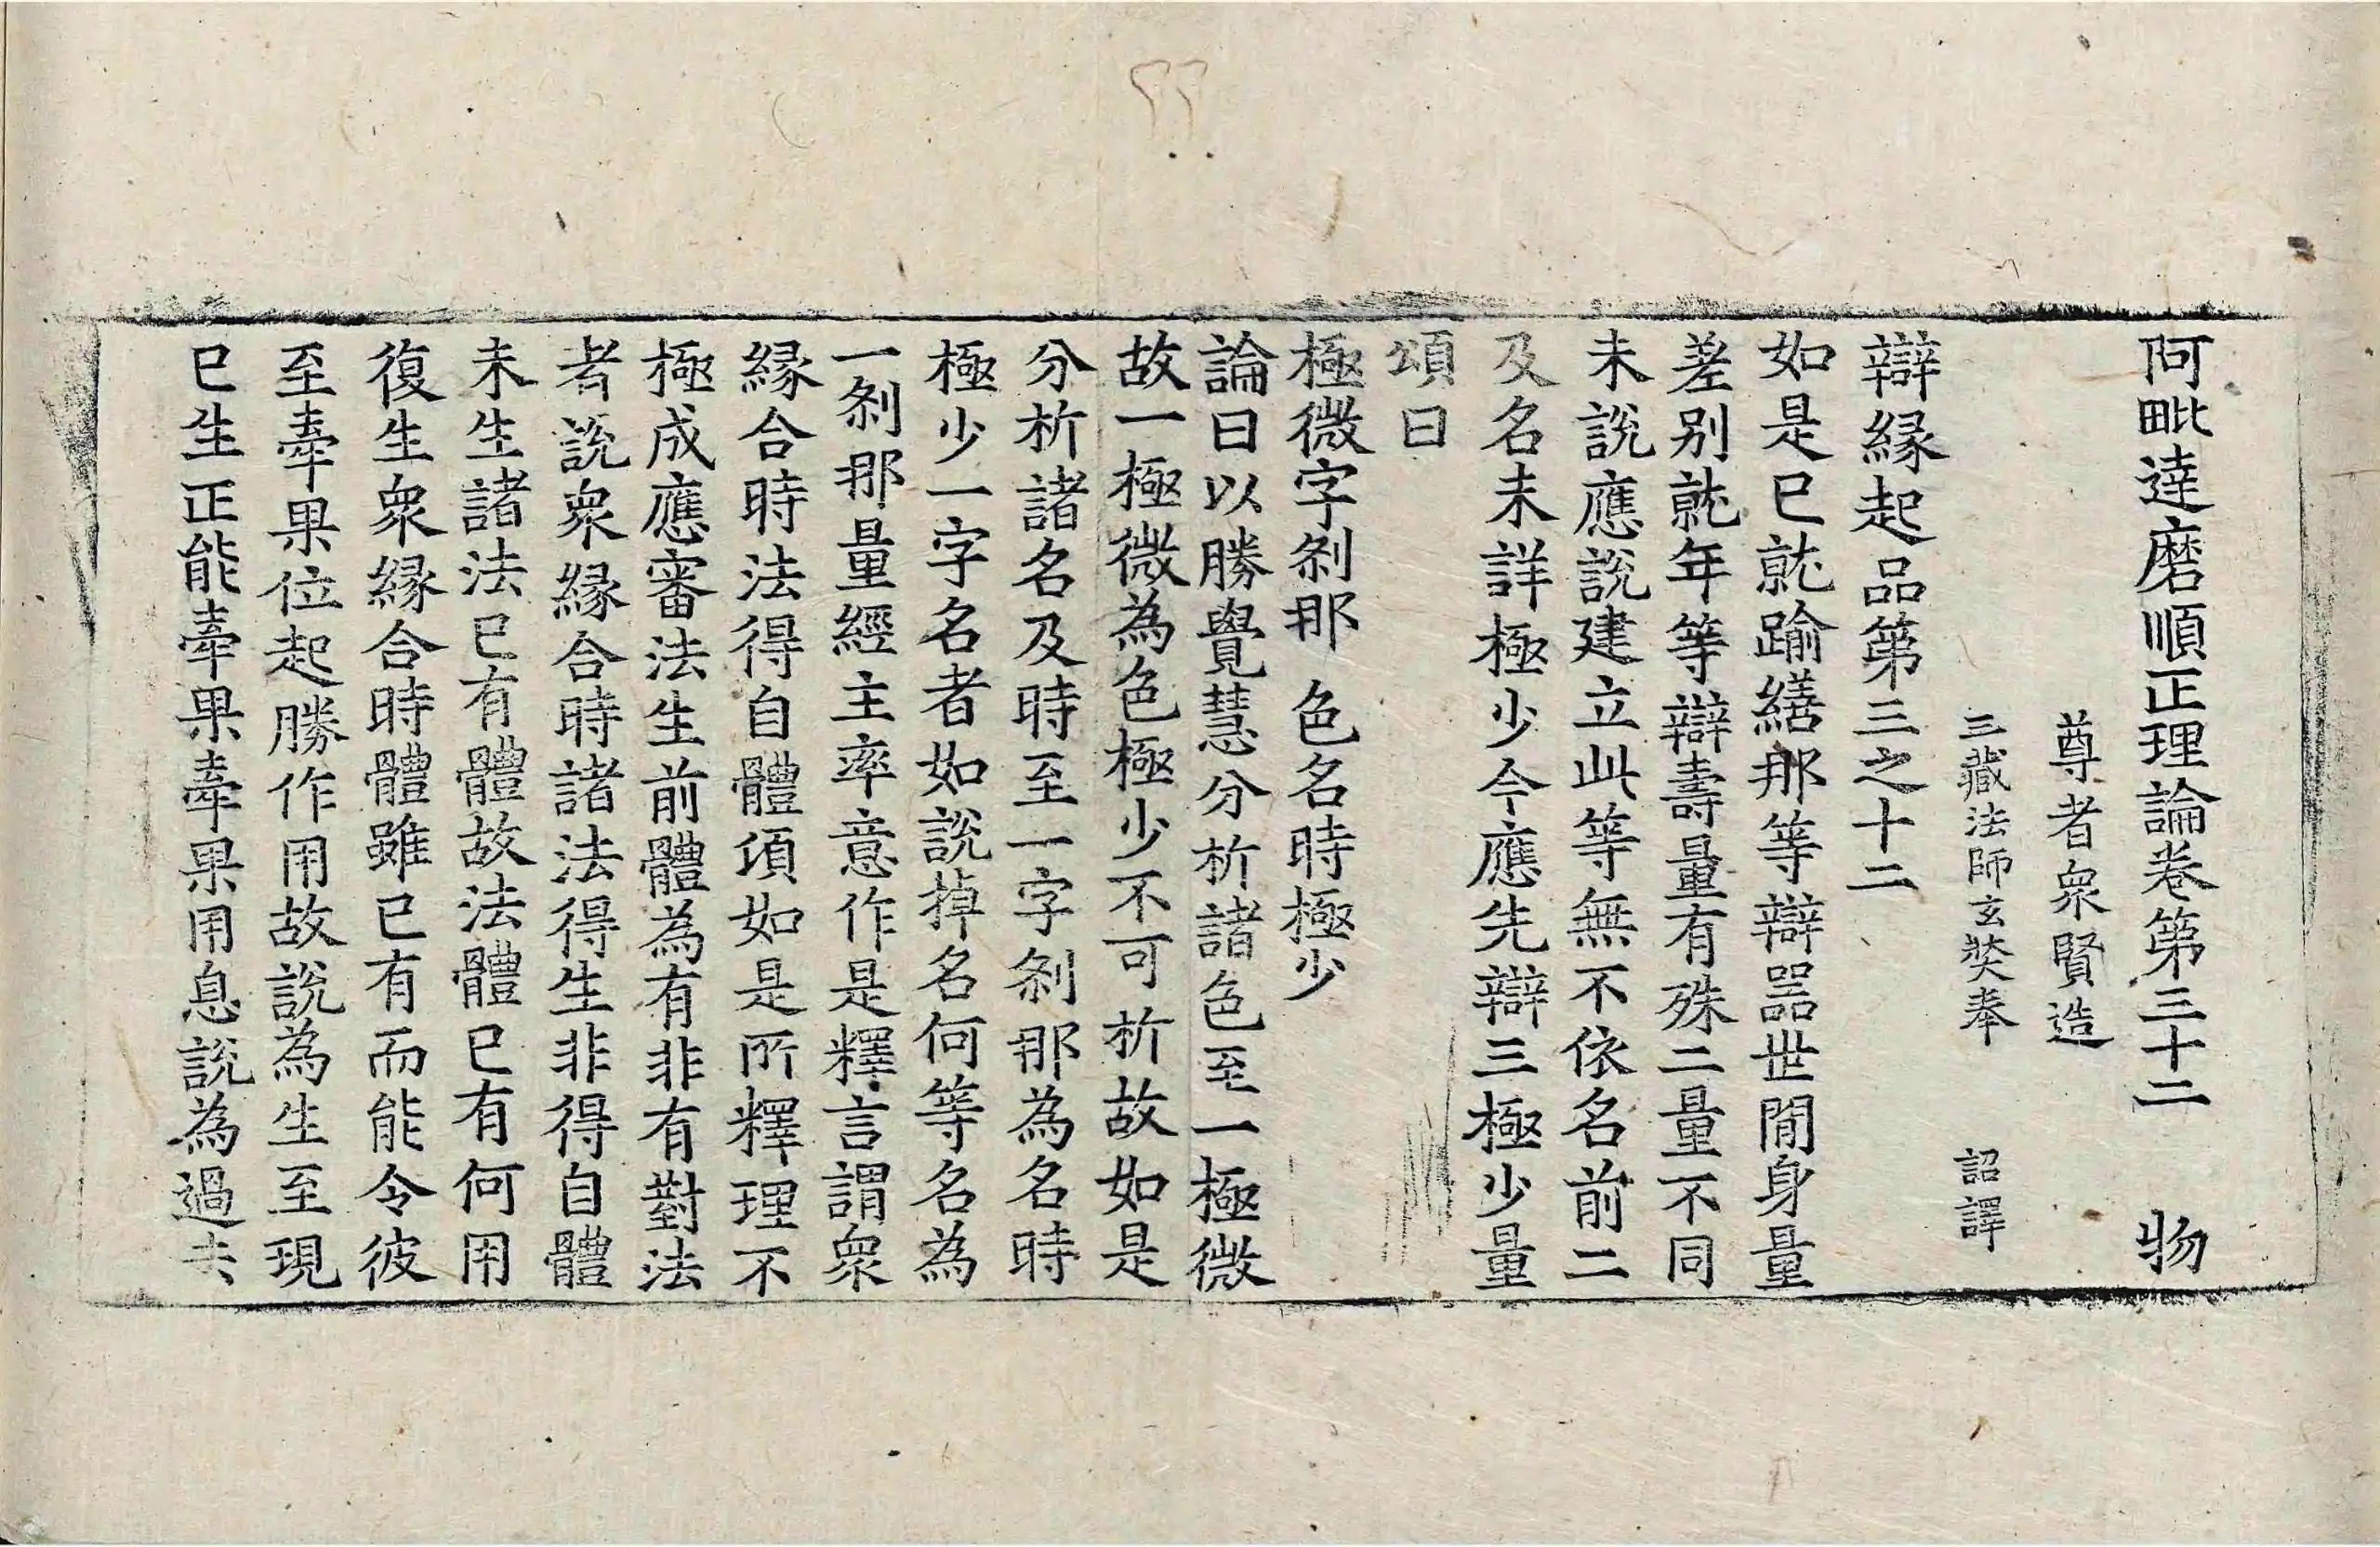 阿毗達磨順正理論卷第三十二 物
尊者衆賢造
三藏法師玄奘奉 詔譯
辯緣起品第三之十二
如是已就踰繕那等辯器世間身量
差別就年等辯壽量有殊二量不同
未說應說建立此等無不依名前二
及名未詳極少今應先辯三極少量
頌曰
極微字剎那 色名時極少
論曰以勝覺慧分析諸色至一極微
故一極微為色極少不可析故如是
分析諸名及時至一字剎那為名時
極少一字名者如說掉名何等名為
一剎那量經主率意作是釋言謂衆
緣合時法得自體頃如是所釋理不
極成應審法生前體為有非有對法
者說衆緣合時諸法得生非得自體
未生諸法已有體故法體已有何用
復生衆緣合時體雖已有而能令彼
至牽果位起勝作用故說為生至現
已生正能牽果牽果用息說為過去